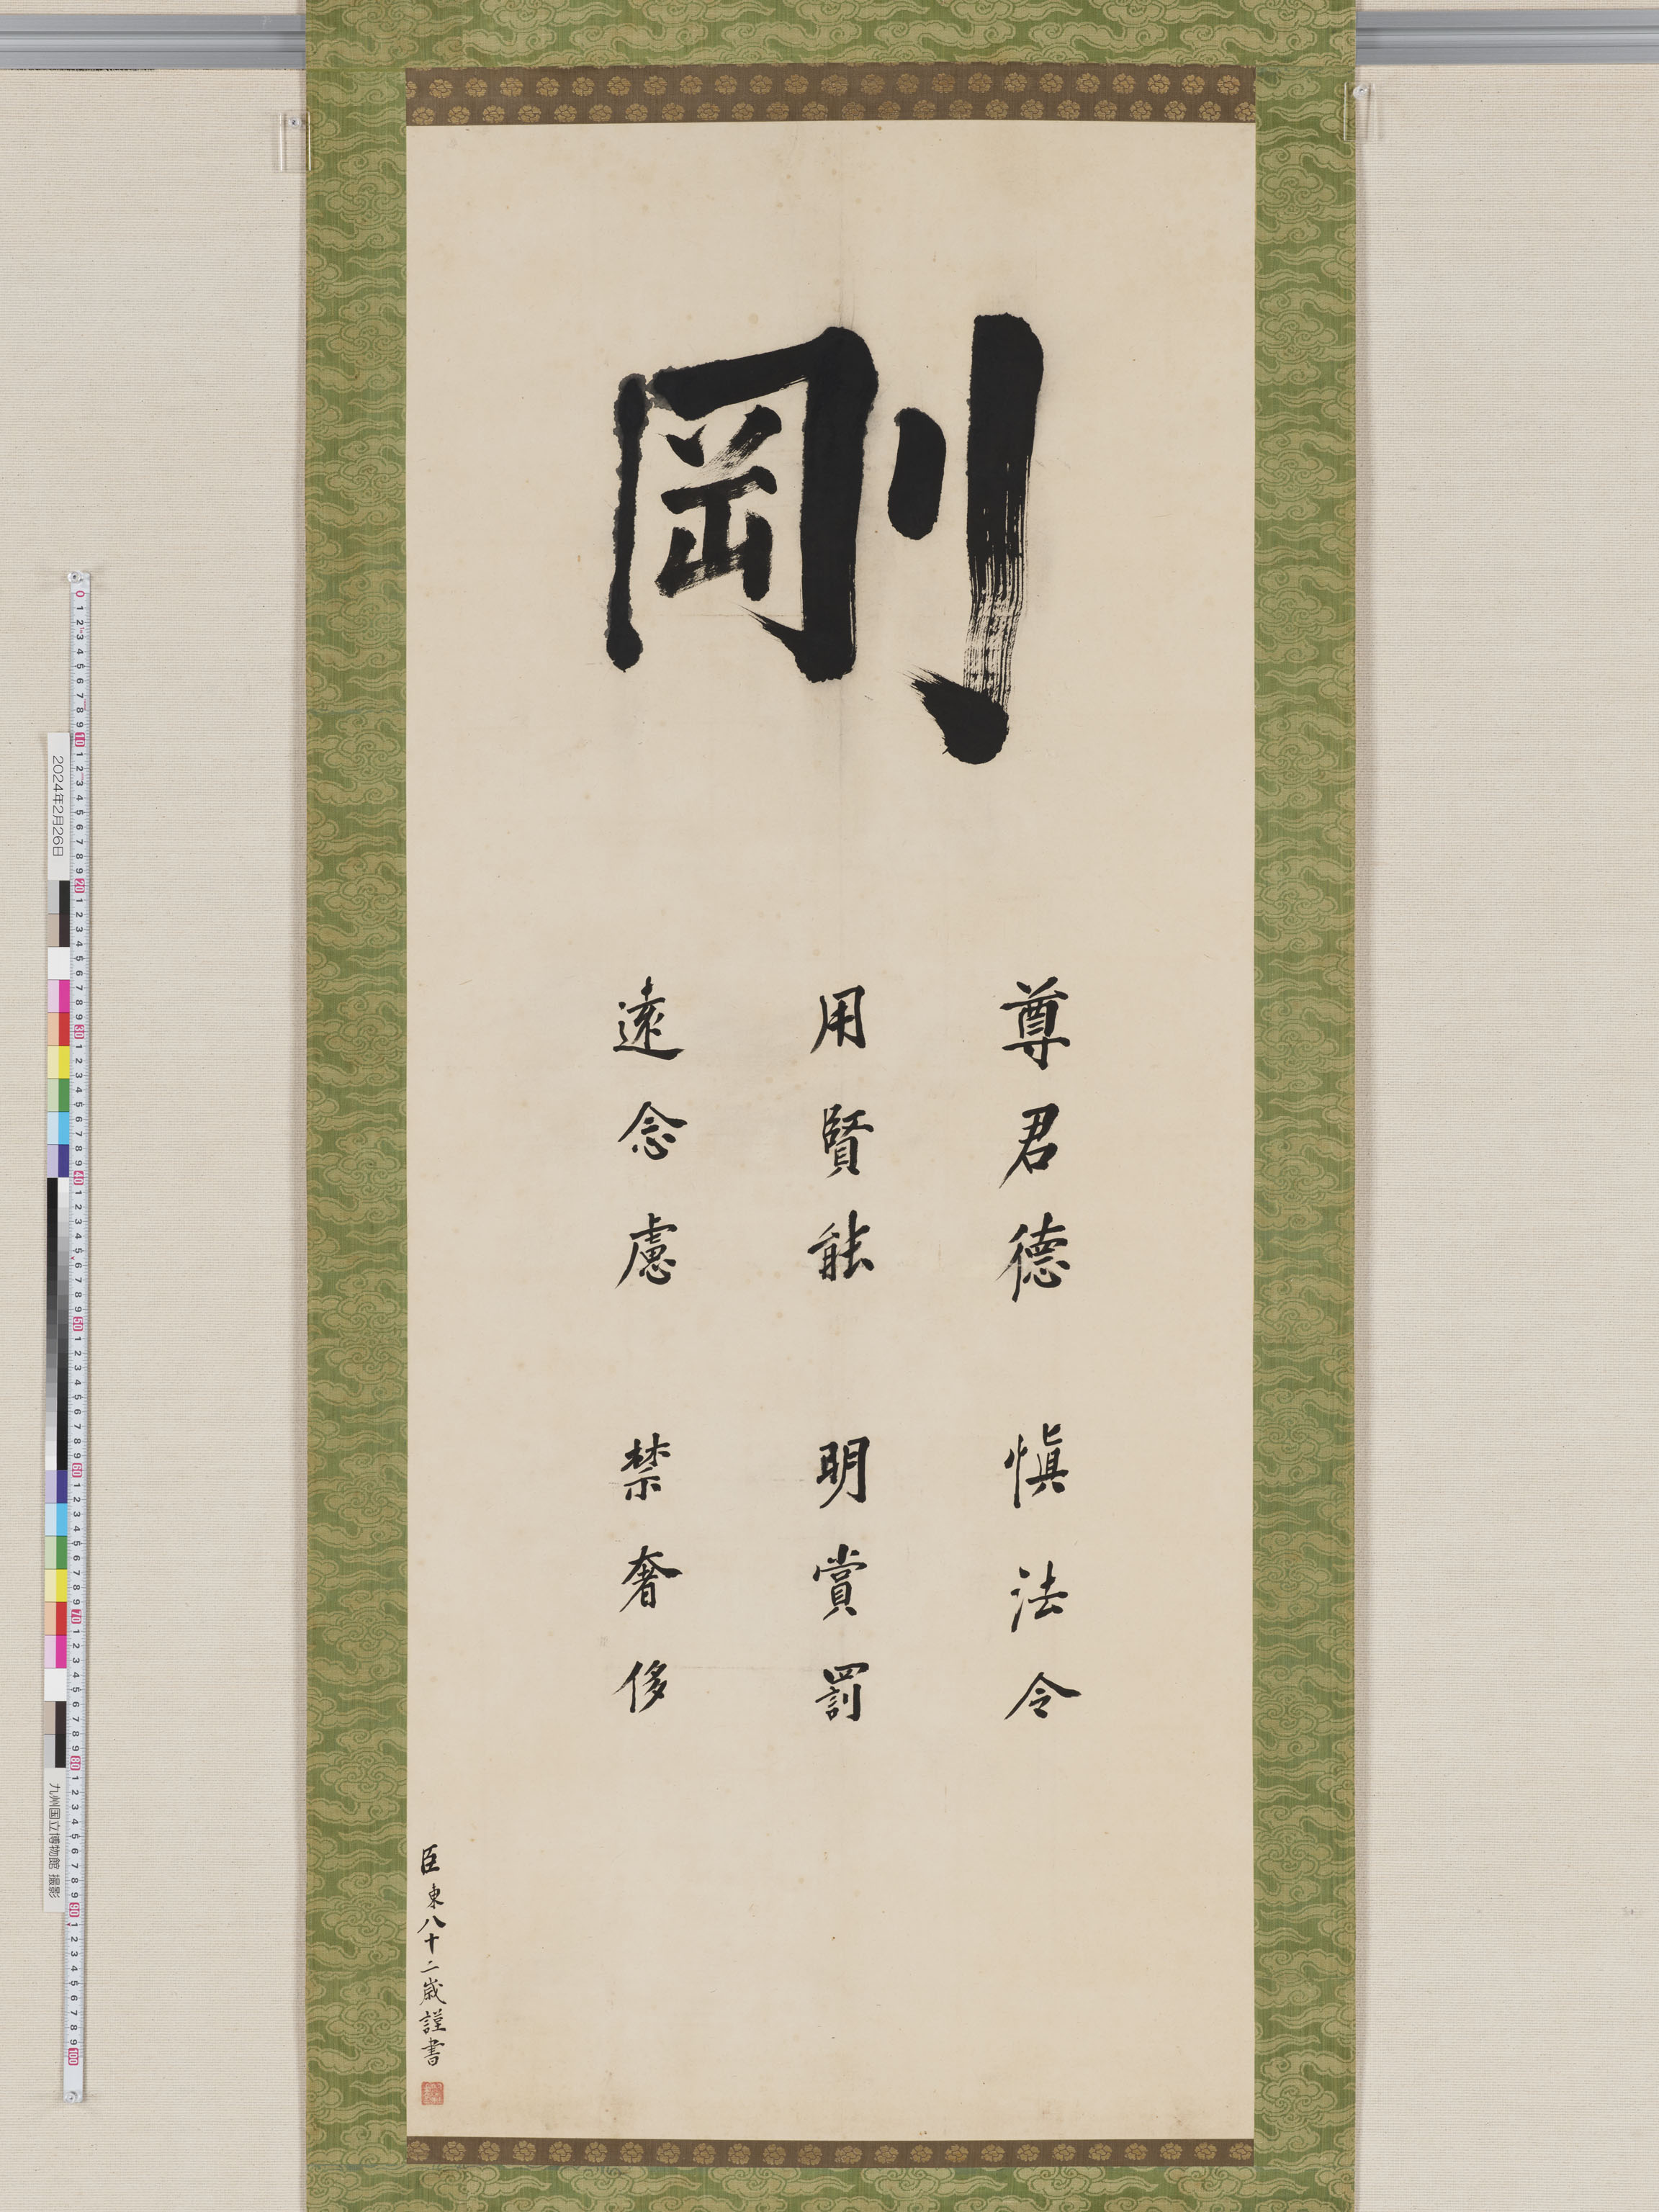 剛
尊君德 慎法令
用賢能 明賞罰
遠念慮 禁奢侈
臣東八十二歳謹書
2024年2月26日
九州国立博物館 撮影